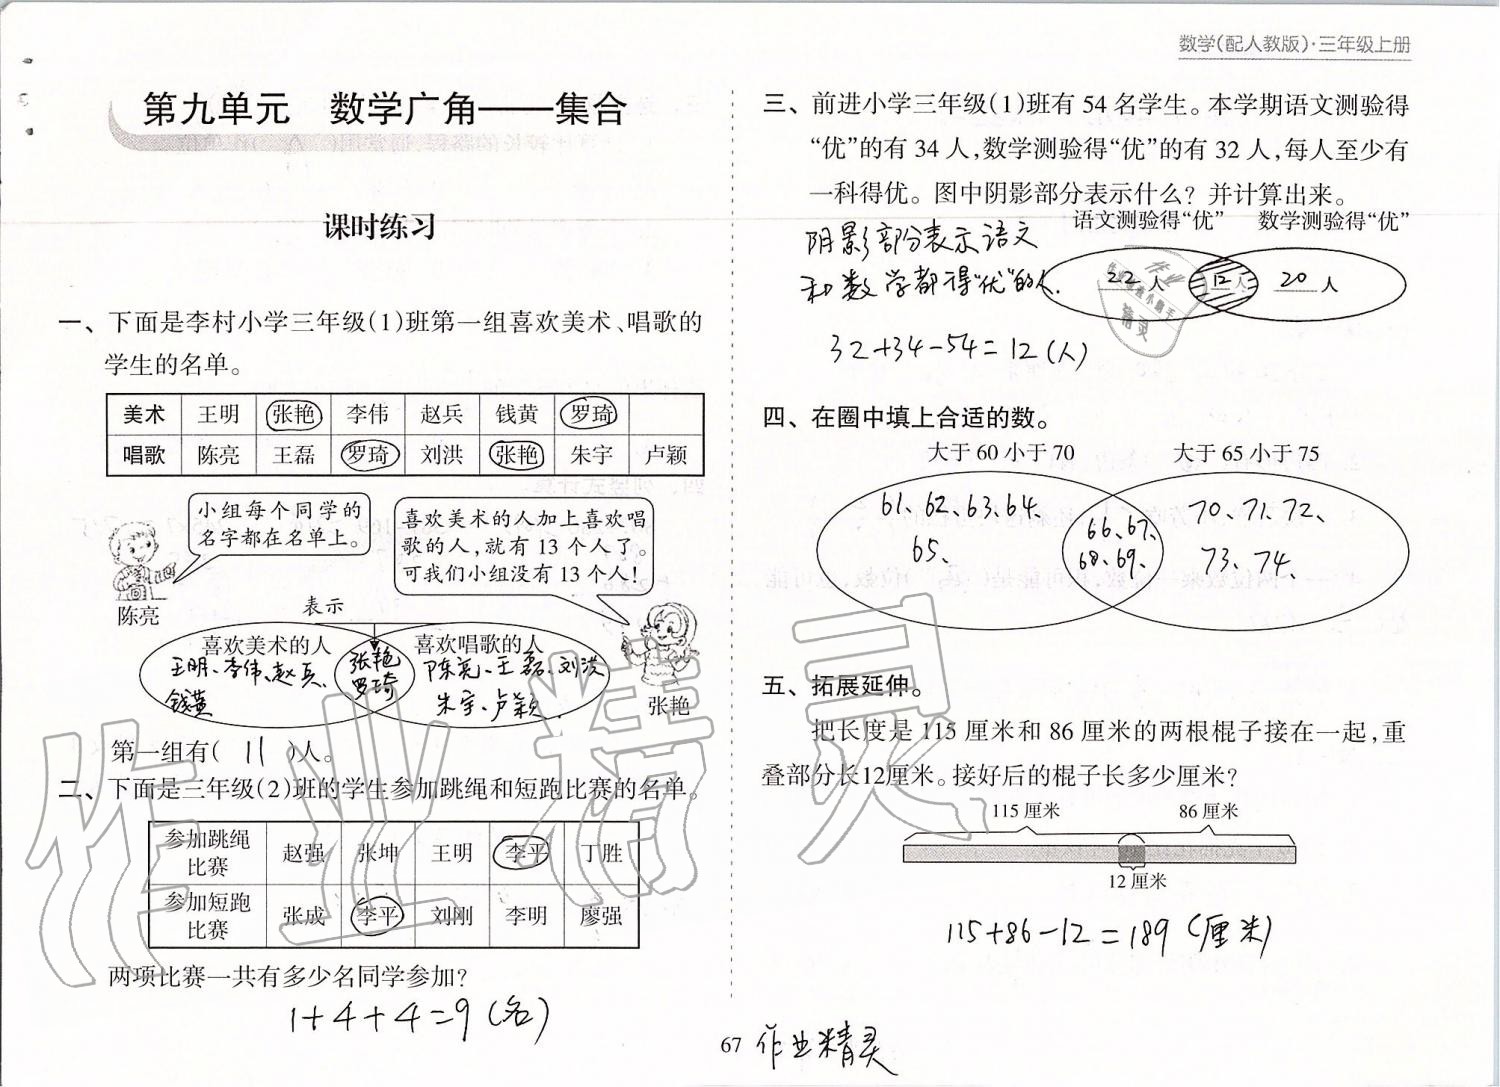 数学(配人教版)·三年级上册
第九单元 数学广角——集合
课时练习
一、下面是李村小学三年级(1)班第一组喜欢美术、唱歌的
学生的名单。
美术 王明 张艳 李伟 赵兵 钱黄 罗琦
唱歌 陈亮 王磊 罗琦 刘洪 张艳 朱宇 卢颖
小组每个同学的
名字都在名单上。
喜欢美术的人加上喜欢唱
歌的人,就有13个人了。
可我们小组没有13个人!
陈亮
表示
喜欢美术的人
喜欢唱歌的人
王明、李伟、赵兵、
钱黄
张艳
罗琦
陈亮、王磊、刘洪
朱宇、卢颖.
张艳
第一组有( 11 )人。
二、下面是三年级(2)班的学生参加跳绳和短跑比赛的名单。
参加跳绳
比赛
赵强 张坤 王明 李平 丁胜
参加短跑
比赛
张成 李平 刘刚 李明 廖强
两项比赛一共有多少名同学参加?
1+4+4=9(名)
三、前进小学三年级(1)班有54名学生。本学期语文测验得
“优”的有34人,数学测验得“优”的有32人,每人至少有
一科得优。图中阴影部分表示什么?并计算出来。
语文测验得“优” 数学测验得“优”
阴影部分表示语文
和数学都得“优”的人.
22人 12人 20人
32+34-54=12(人)
四、在圈中填上合适的数。
大于60小于70 大于65小于75
61、62、63、64、
65、
66、67、
68、69、
70、71、72、
73、74、
五、拓展延伸。
把长度是115厘米和86厘米的两根棍子接在一起,重
叠部分长12厘米。接好后的棍子长多少厘米?
115厘米 86厘米
12厘米
115+86-12=189(厘米)
67
作业精灵
作业精灵